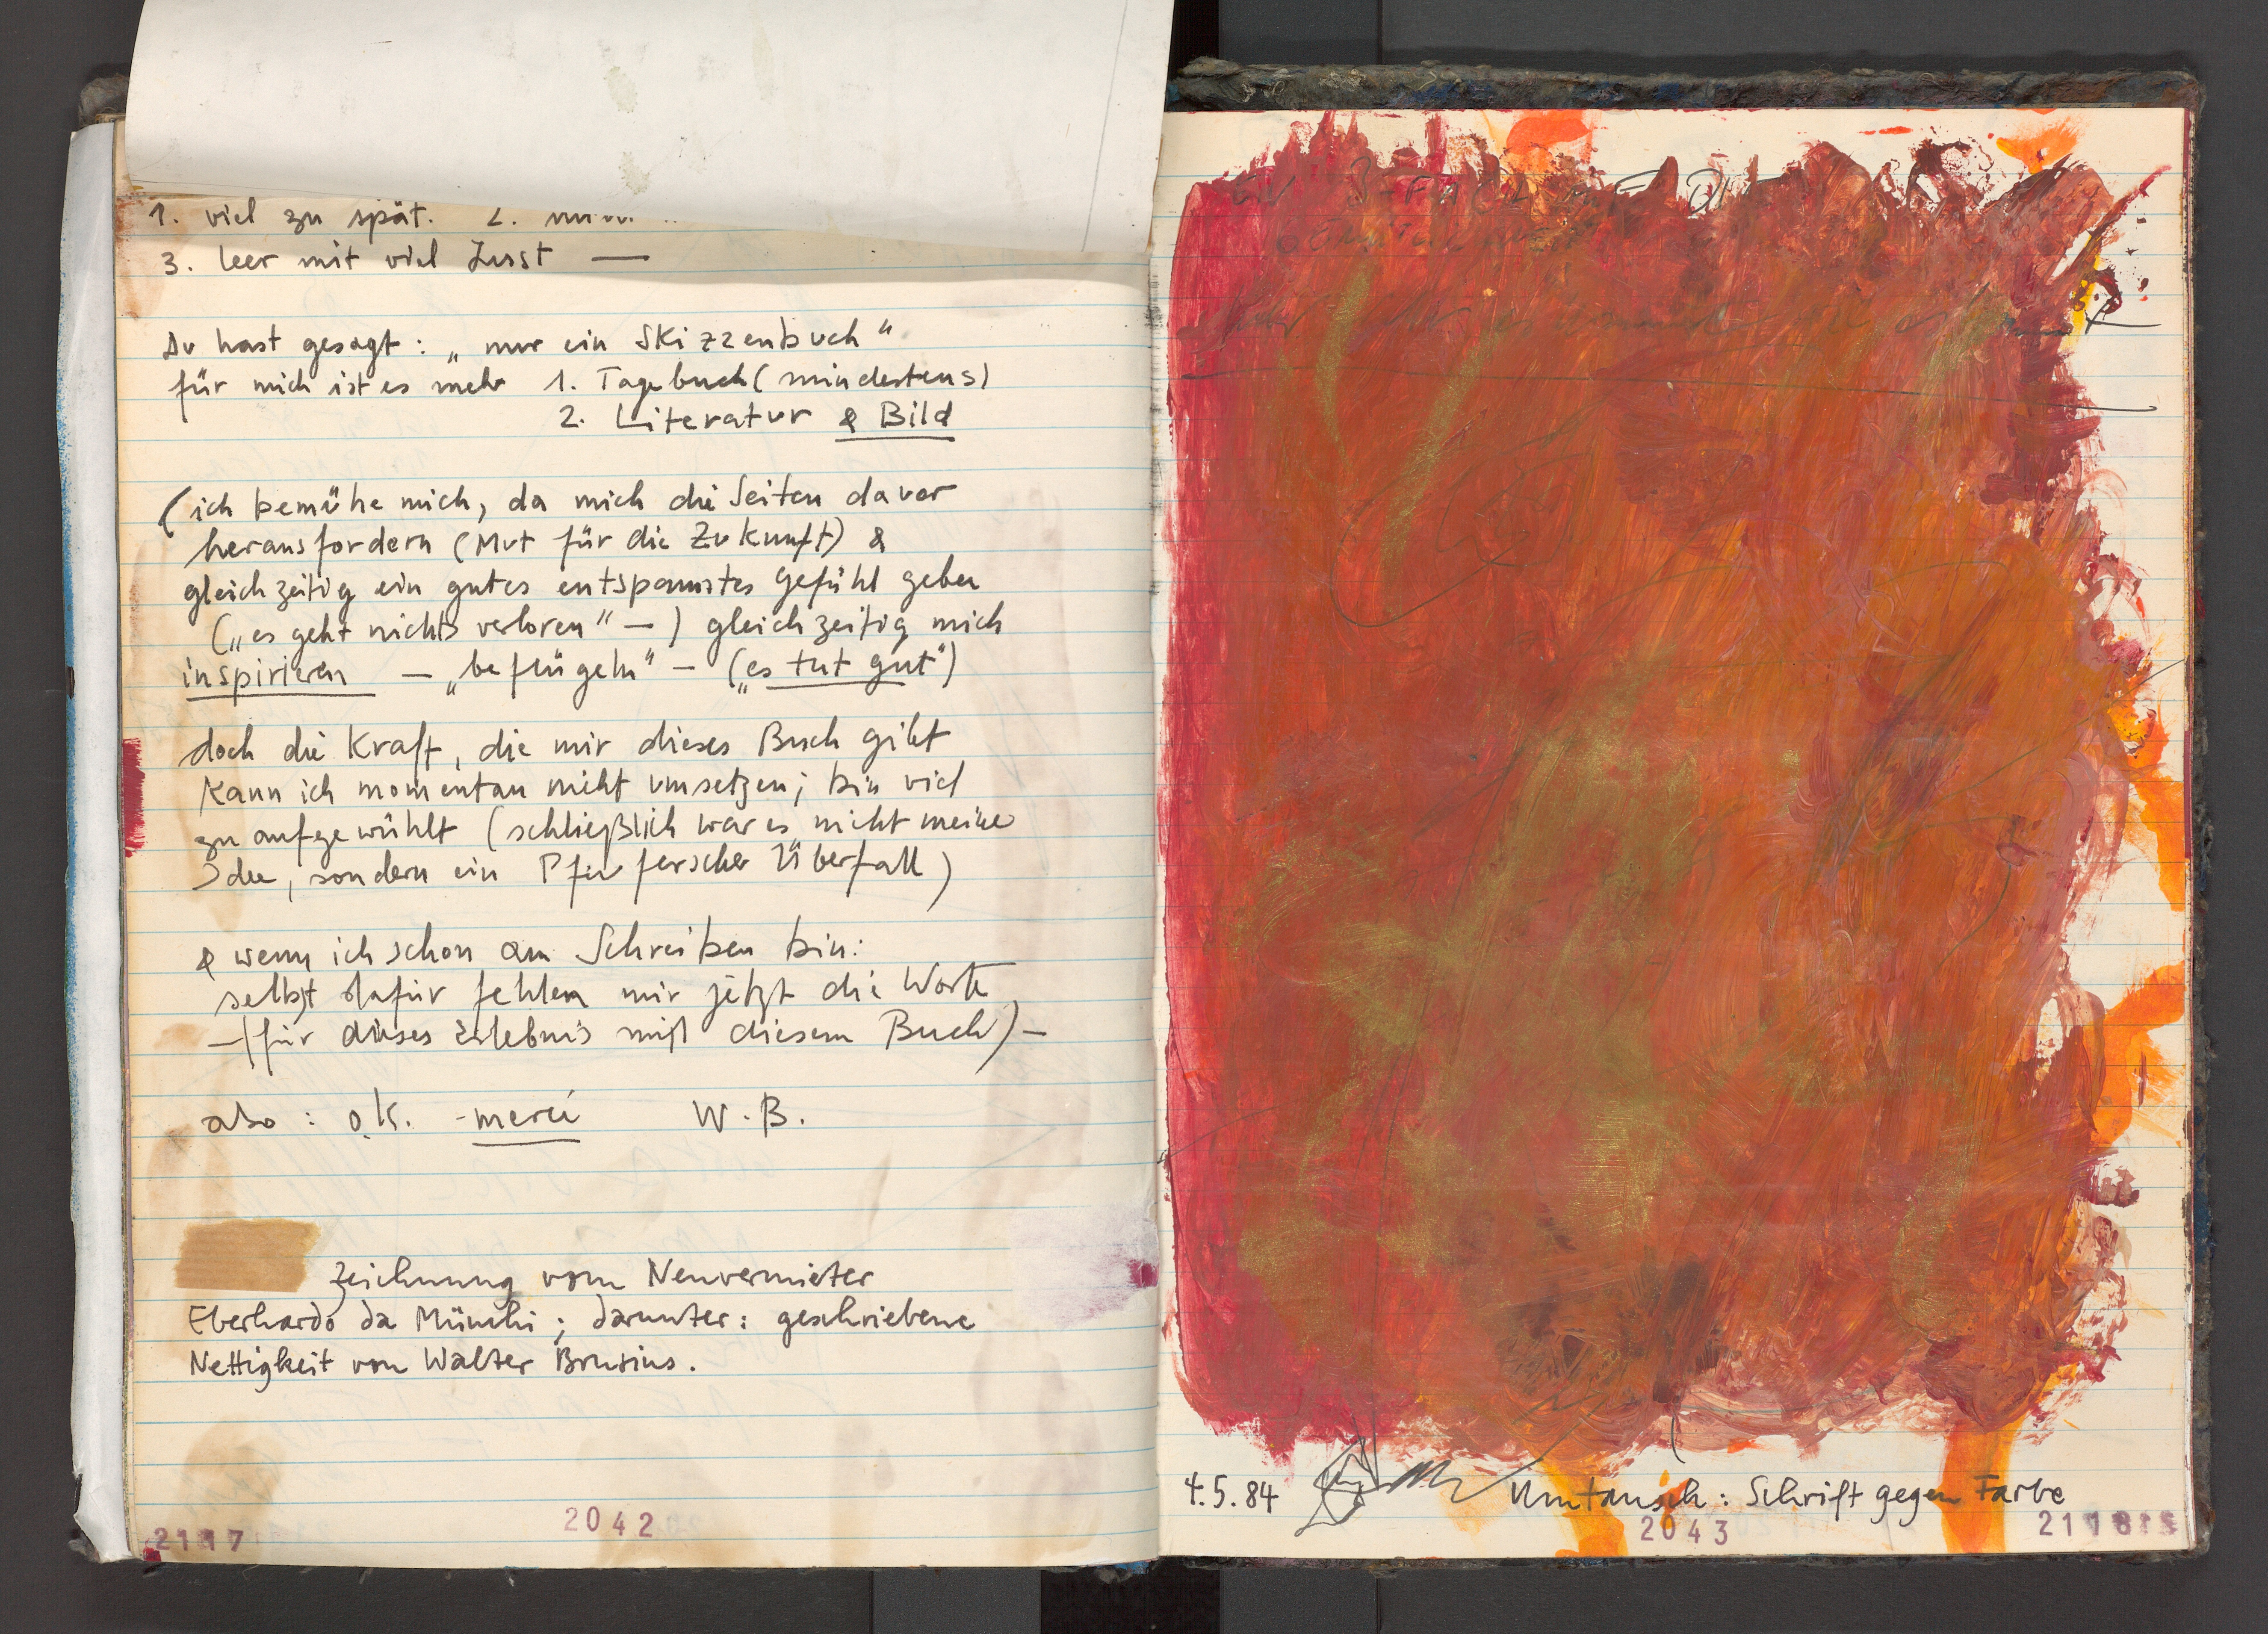 1. viel zu spät. 2.
3. leer mit viel Lust —
Du hast gesagt: „nur ein Skizzenbuch"
für mich ist es mehr 1. Tagebuch (mindestens)
2. Literatur & Bild
(ich bemühe mich, da mich die Seiten davor
herausfordern (Mut für die Zukunft) &
gleichzeitig ein gutes entspanntes Gefühl geben
(„es geht nichts verloren" —) gleichzeitig mich
inspirieren — „beflügeln" — („es tut gut")
doch die Kraft, die mir dieses Buch gibt
kann ich momentan nicht umsetzen; bin viel
zu aufgewühlt (schließlich war es nicht meine
Idee, sondern ein Pfeiferscher Überfall)
& wenn ich schon am Schreiben bin:
selbst dafür fehlen mir jetzt die Worte
—(für dieses Erlebnis mit diesem Buch)—
also : o.k. - merci W.B.
Zeichnung vom Neuvermieter
Eberhardo da Münchi; darunter: geschriebene
Nettigkeit von Walter Brusius.
2042
2117
4.5.84 Umtausch: Schrift gegen Farbe
2043
2118